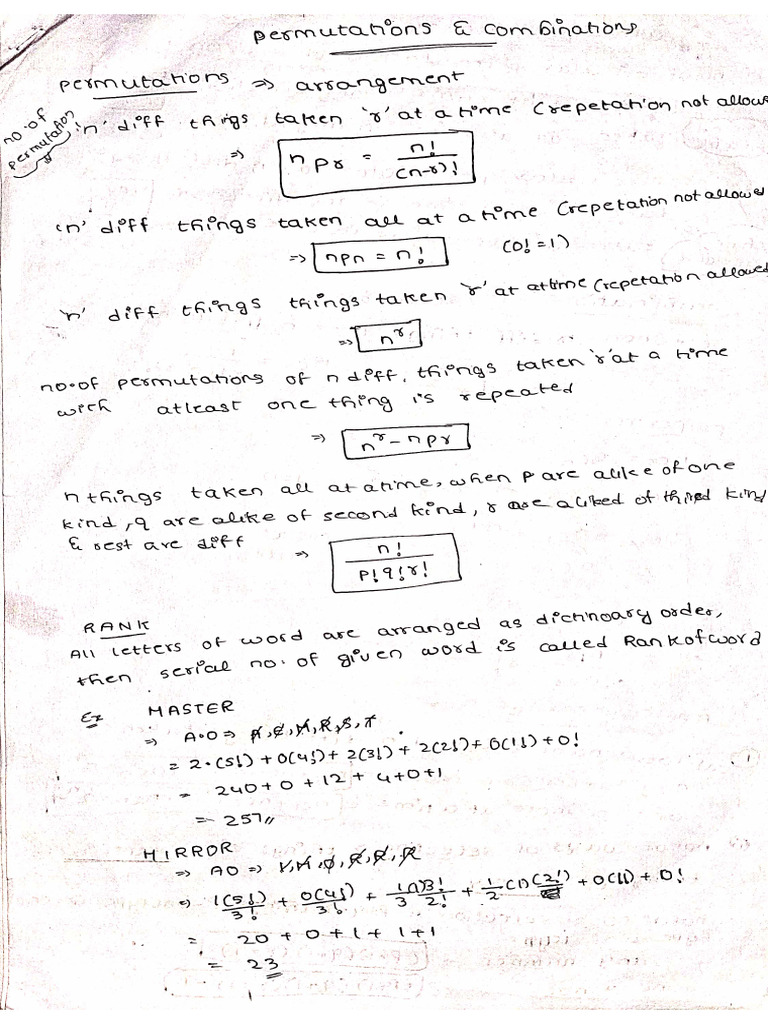 permutations & combinations
permutations ⇒ arrangement
no. of permutation
'n' diff things taken 'r' at a time (repetation not allow
⇒ nPr = n!/(n-r)!
'n' diff things taken all at a time (repetation not allowed
⇒ nPn = n! (0! = 1)
'n' diff things things taken 'r' at attime (repetation allowed
⇒ n^r
no. of permutations of n diff. things taken 'r' at a time
with atleast one thing is repeated
⇒ n^r - nPr
n things taken all at atime, when p are alike of one
kind, q are alike of second kind, r are aliked of third kind
& rest are diff ⇒ n!/(p! q! r!)
RANK
All letters of word are arranged as dictinoary order,
then serial no. of given word is called Rank of word
Ex MASTER
⇒ A.O ⇒ A, E, M, R, S, T
= 2.(5!) + 0(4!) + 2(3!) + 2(2!) + 0(1!) + 0!
= 240 + 0 + 12 + 4 + 0 + 1
= 257
MIRROR
⇒ AO ⇒ I, M, O, R, R, R
⇒ 1(5!)/3! + 0(4!)/3! + 1(1)3!/3 2! + 1/2 (1)(2!) + 0(1!) + 0!
= 20 + 0 + 1 + 1 + 1
= 23